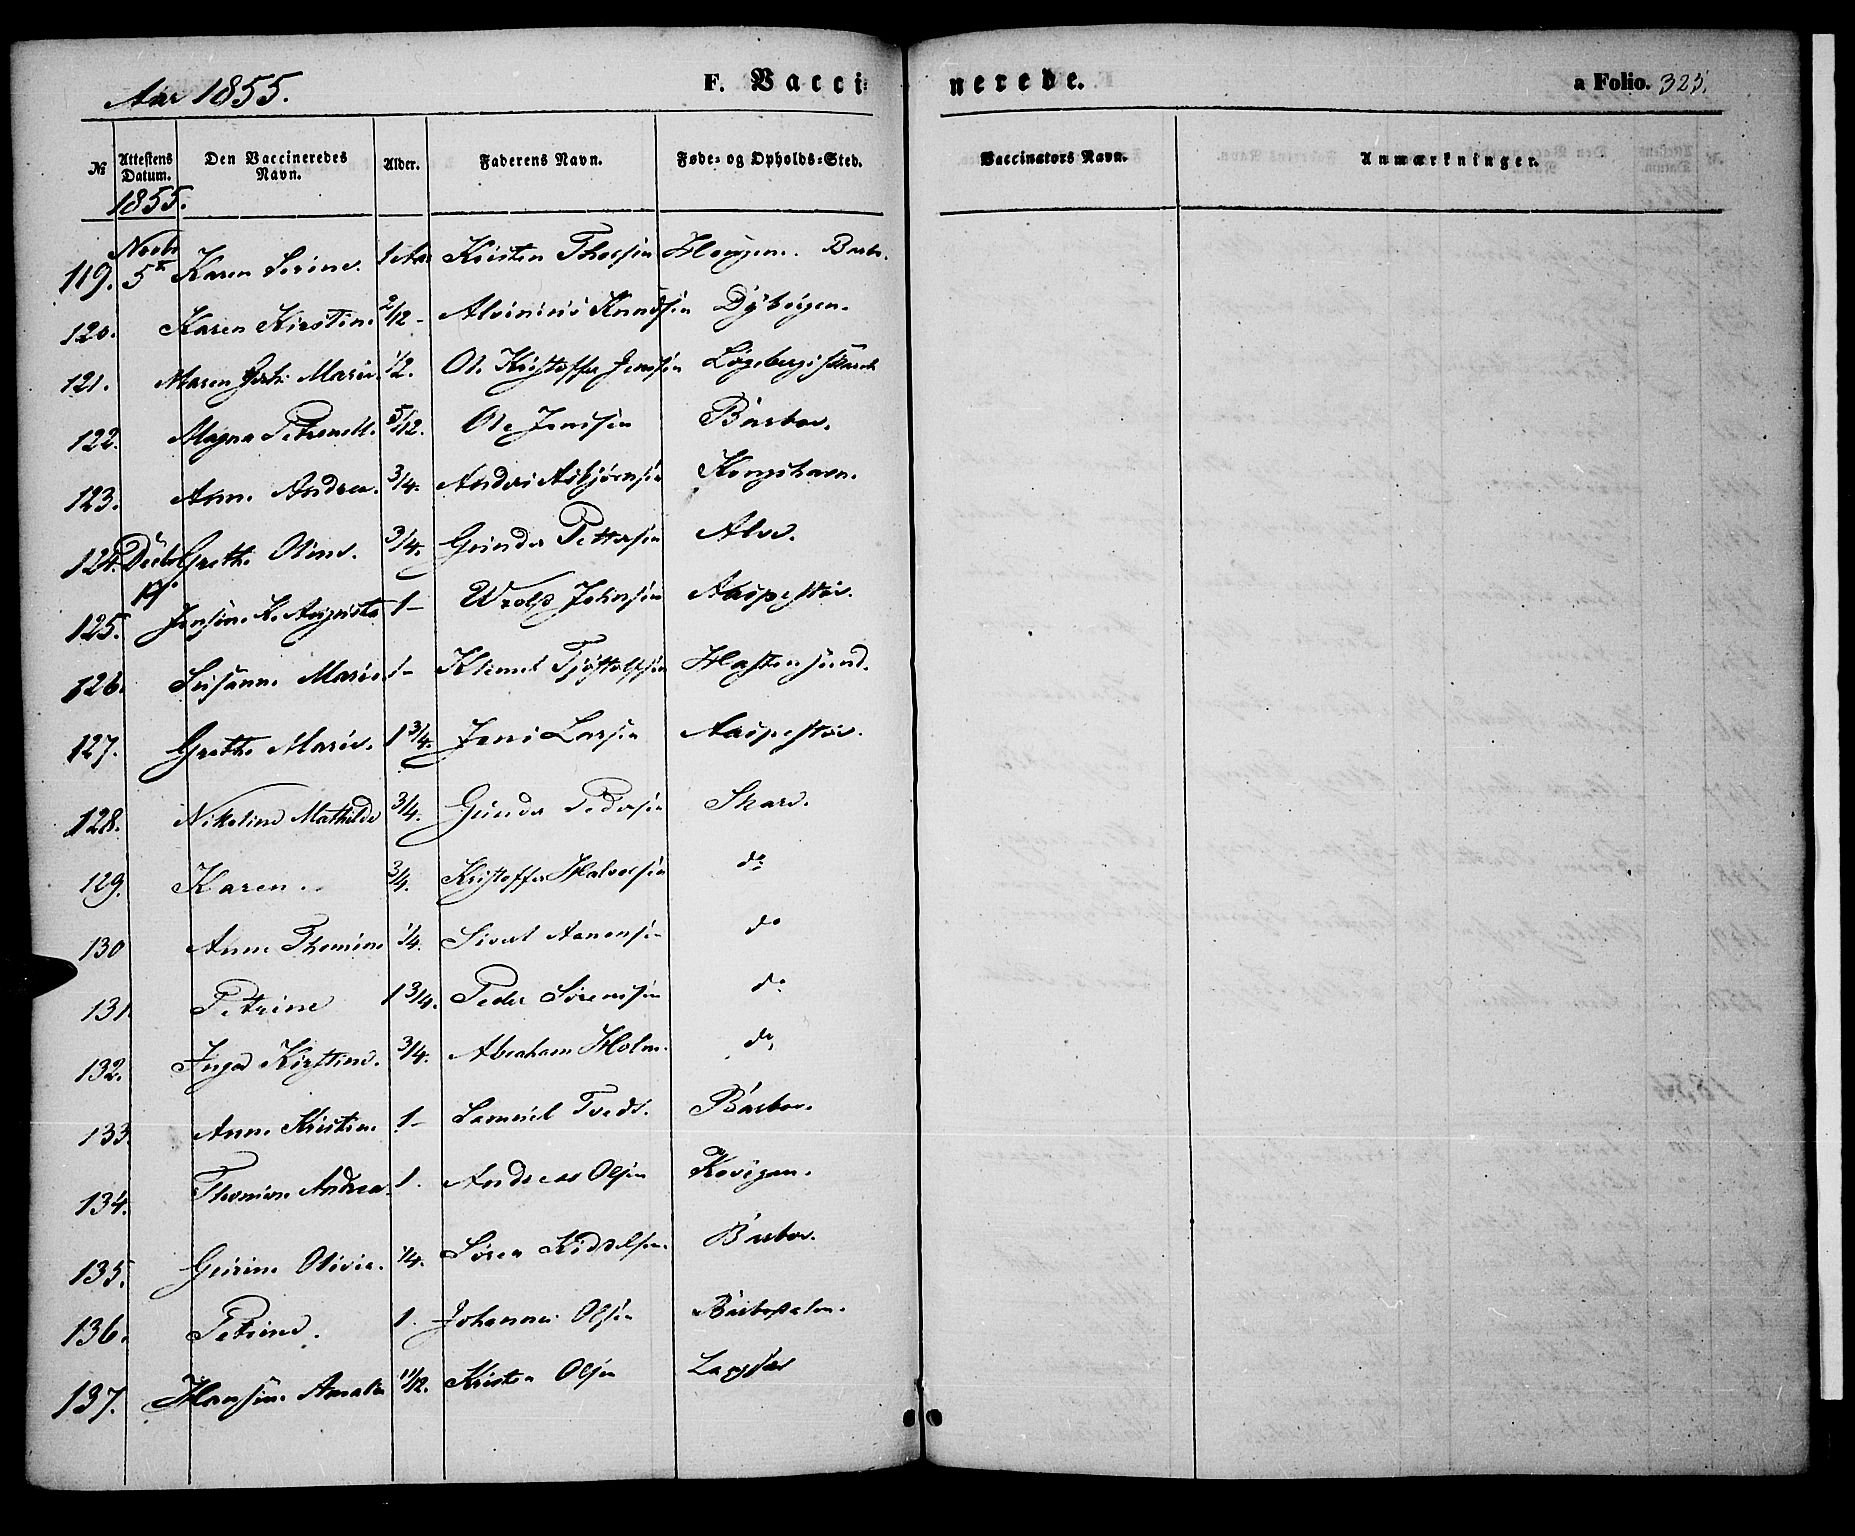 Aar 1855. F. Vacci= nerede. a Folio. 325.
№ Attestens Datum. Den Vaccineredes Navn. Alder. Faderens Navn. Føde= og Opholds=Sted. Vaccinators Navn. Anmærkninger.
1855.
119. Novbr 5te Karen Serine. 1 Aar Kristen Thorsen Haugen. Barbo.
120. Karen Kirstine. 2/12 - Knudsen Dybergen.
121. Maren Marie. 1/2. Ole Kristoffer Jensen
122. Magna Petronell. 5/12. Ole Jensen Barbo.
123. Anne Andrea. 3/4. Anders Asbjørnsen Kongshavn.
124. Decbr 17. Grethe Oline. 3/4. Gunder Pettersen Alve.
125. Jensine K. Augusta 1 - Johnsen
126. Susanne Marie. 1 - Klemet Tjøstolfsen Hastensund.
127. Grethe Marie. 1 3/4. Jens Larsen
128. Nikoline Mathilde 3/4. Gunder Pedersen Skare.
129. Karen. 3/4. Kristoffer Halvorsen do
130 Anne Thomine 1/4. Sivert Aanensen do
131. Petrine 1 3/4. Peder Sørensen do
132. Inga Kirstine. 3/4. Abraham Holm. do
133. Anne Kristine. 1 - Samuel Tvedt. Barbo.
134. Thomine Andrea. 1. Andreas Olsen
135. Gurine Olivie. 1/4. Søren Kiddelsen. Barbo.
136. Petrine. 1. Johannes Olsen
137. Hansine Amalia 11/12. Kristen Olsen